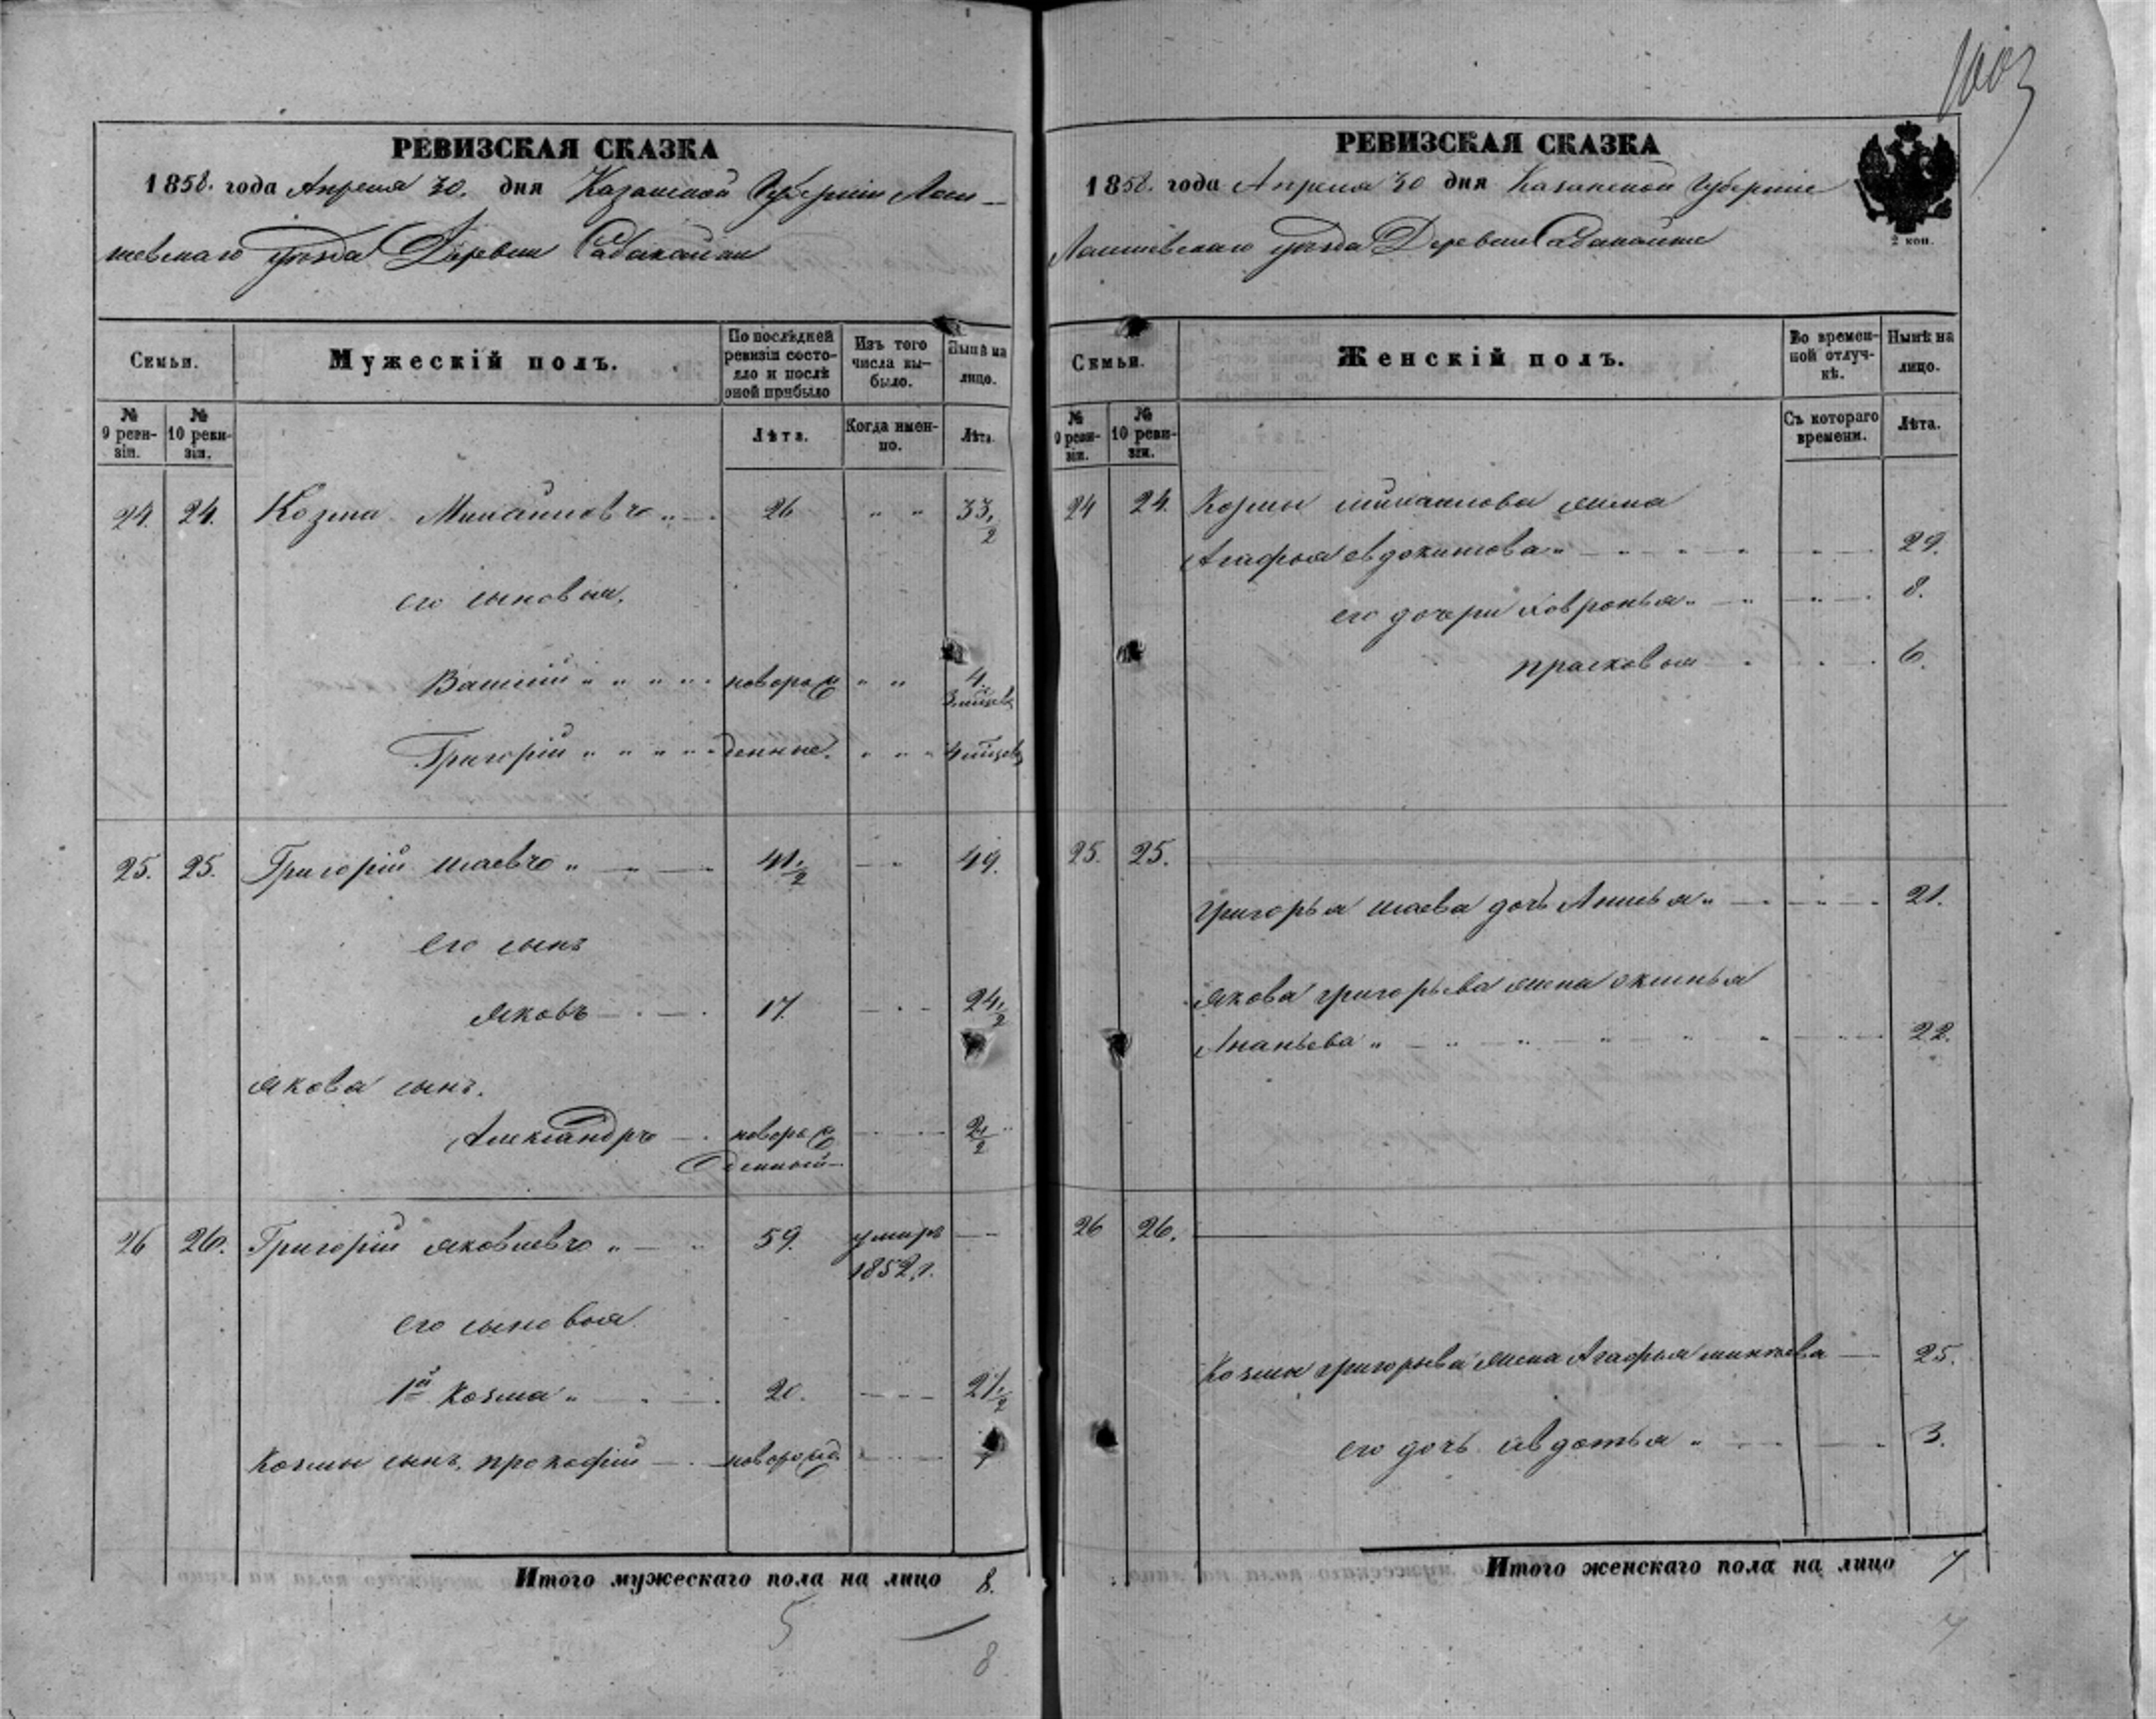 1003
РЕВИЗСКАЯ СКАЗКА
1858. года Апреля 30. дня Казанской Губернии Лаи-
шевскаго уезда Деревни Сабакайки
Семьи.
Мужескій полъ.
По послѣдней ревизіи состояло и послѣ оной прибыло
Изъ того числа выбыло.
Нынѣ на лицо.
№ 9 ревизіи.
№ 10 ревизіи.
Лѣта.
Когда именно.
Лѣта.
24. 24. Козма Михайловъ 26 " " 33 1/2
его сыновья.
Василій " " " " новорож " " 4.
3 месяцев
Григорій " " " " денные. " " 4 месяцев
25. 25. Григорій Исаевъ " 41 1/2 - " 49.
его сынъ
Яковъ 17. 24 1/2
Якова сынъ.
Александръ новорож 2 1/2
денный
26 26. Григорій Яковлевъ " 59. умиръ —
1852 г.
его сыновья
1й Козма " 20. 27 1/2
Козмы сынъ, прокофій новорожд.
Итого мужескаго пола на лицо 8.
5
8
РЕВИЗСКАЯ СКАЗКА
1858. года Апреля 30 дня Казанской Губерніи
2 коп.
Лаишевскаго уезда Деревни Сабакайки
Семьи.
Женскій полъ.
Во временной отлучкѣ.
Нынѣ на лицо.
№ 9 ревизіи.
№ 10 ревизіи.
Съ котораго времени.
Лѣта.
24 24. Козмы михаилова жена
Агафья евдокимова " 29.
его дочери Хавронья " 8.
прасковья 6.
25. 25.
Григорья исаева дочь Анисья " 21.
Якова григорьева жена оксинья
Ананьева " 22.
26 26.
Козмы григорьева жена Агафья 25.
его дочь авдотья " 3.
Итого женскаго пола на лицо 7
7